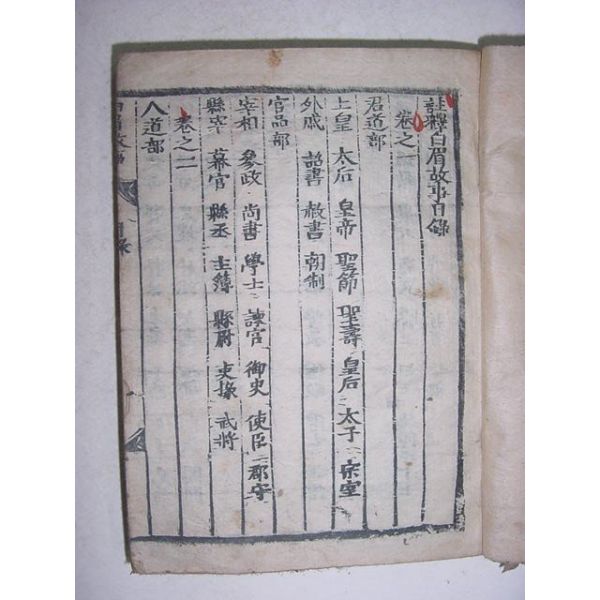 註釋白眉故事目錄
卷之一
君道部
上皇 太后 皇帝 聖節 聖壽 皇后 太子 宗室
外戚 詔書 赦書 朝制
官品部
宰相 參政 尚書 學士 諫官 御史 使臣 郡守
縣宰 幕官 縣丞 主簿 縣尉 吏掾 武將
卷之二
人道部
白眉故事 目彔